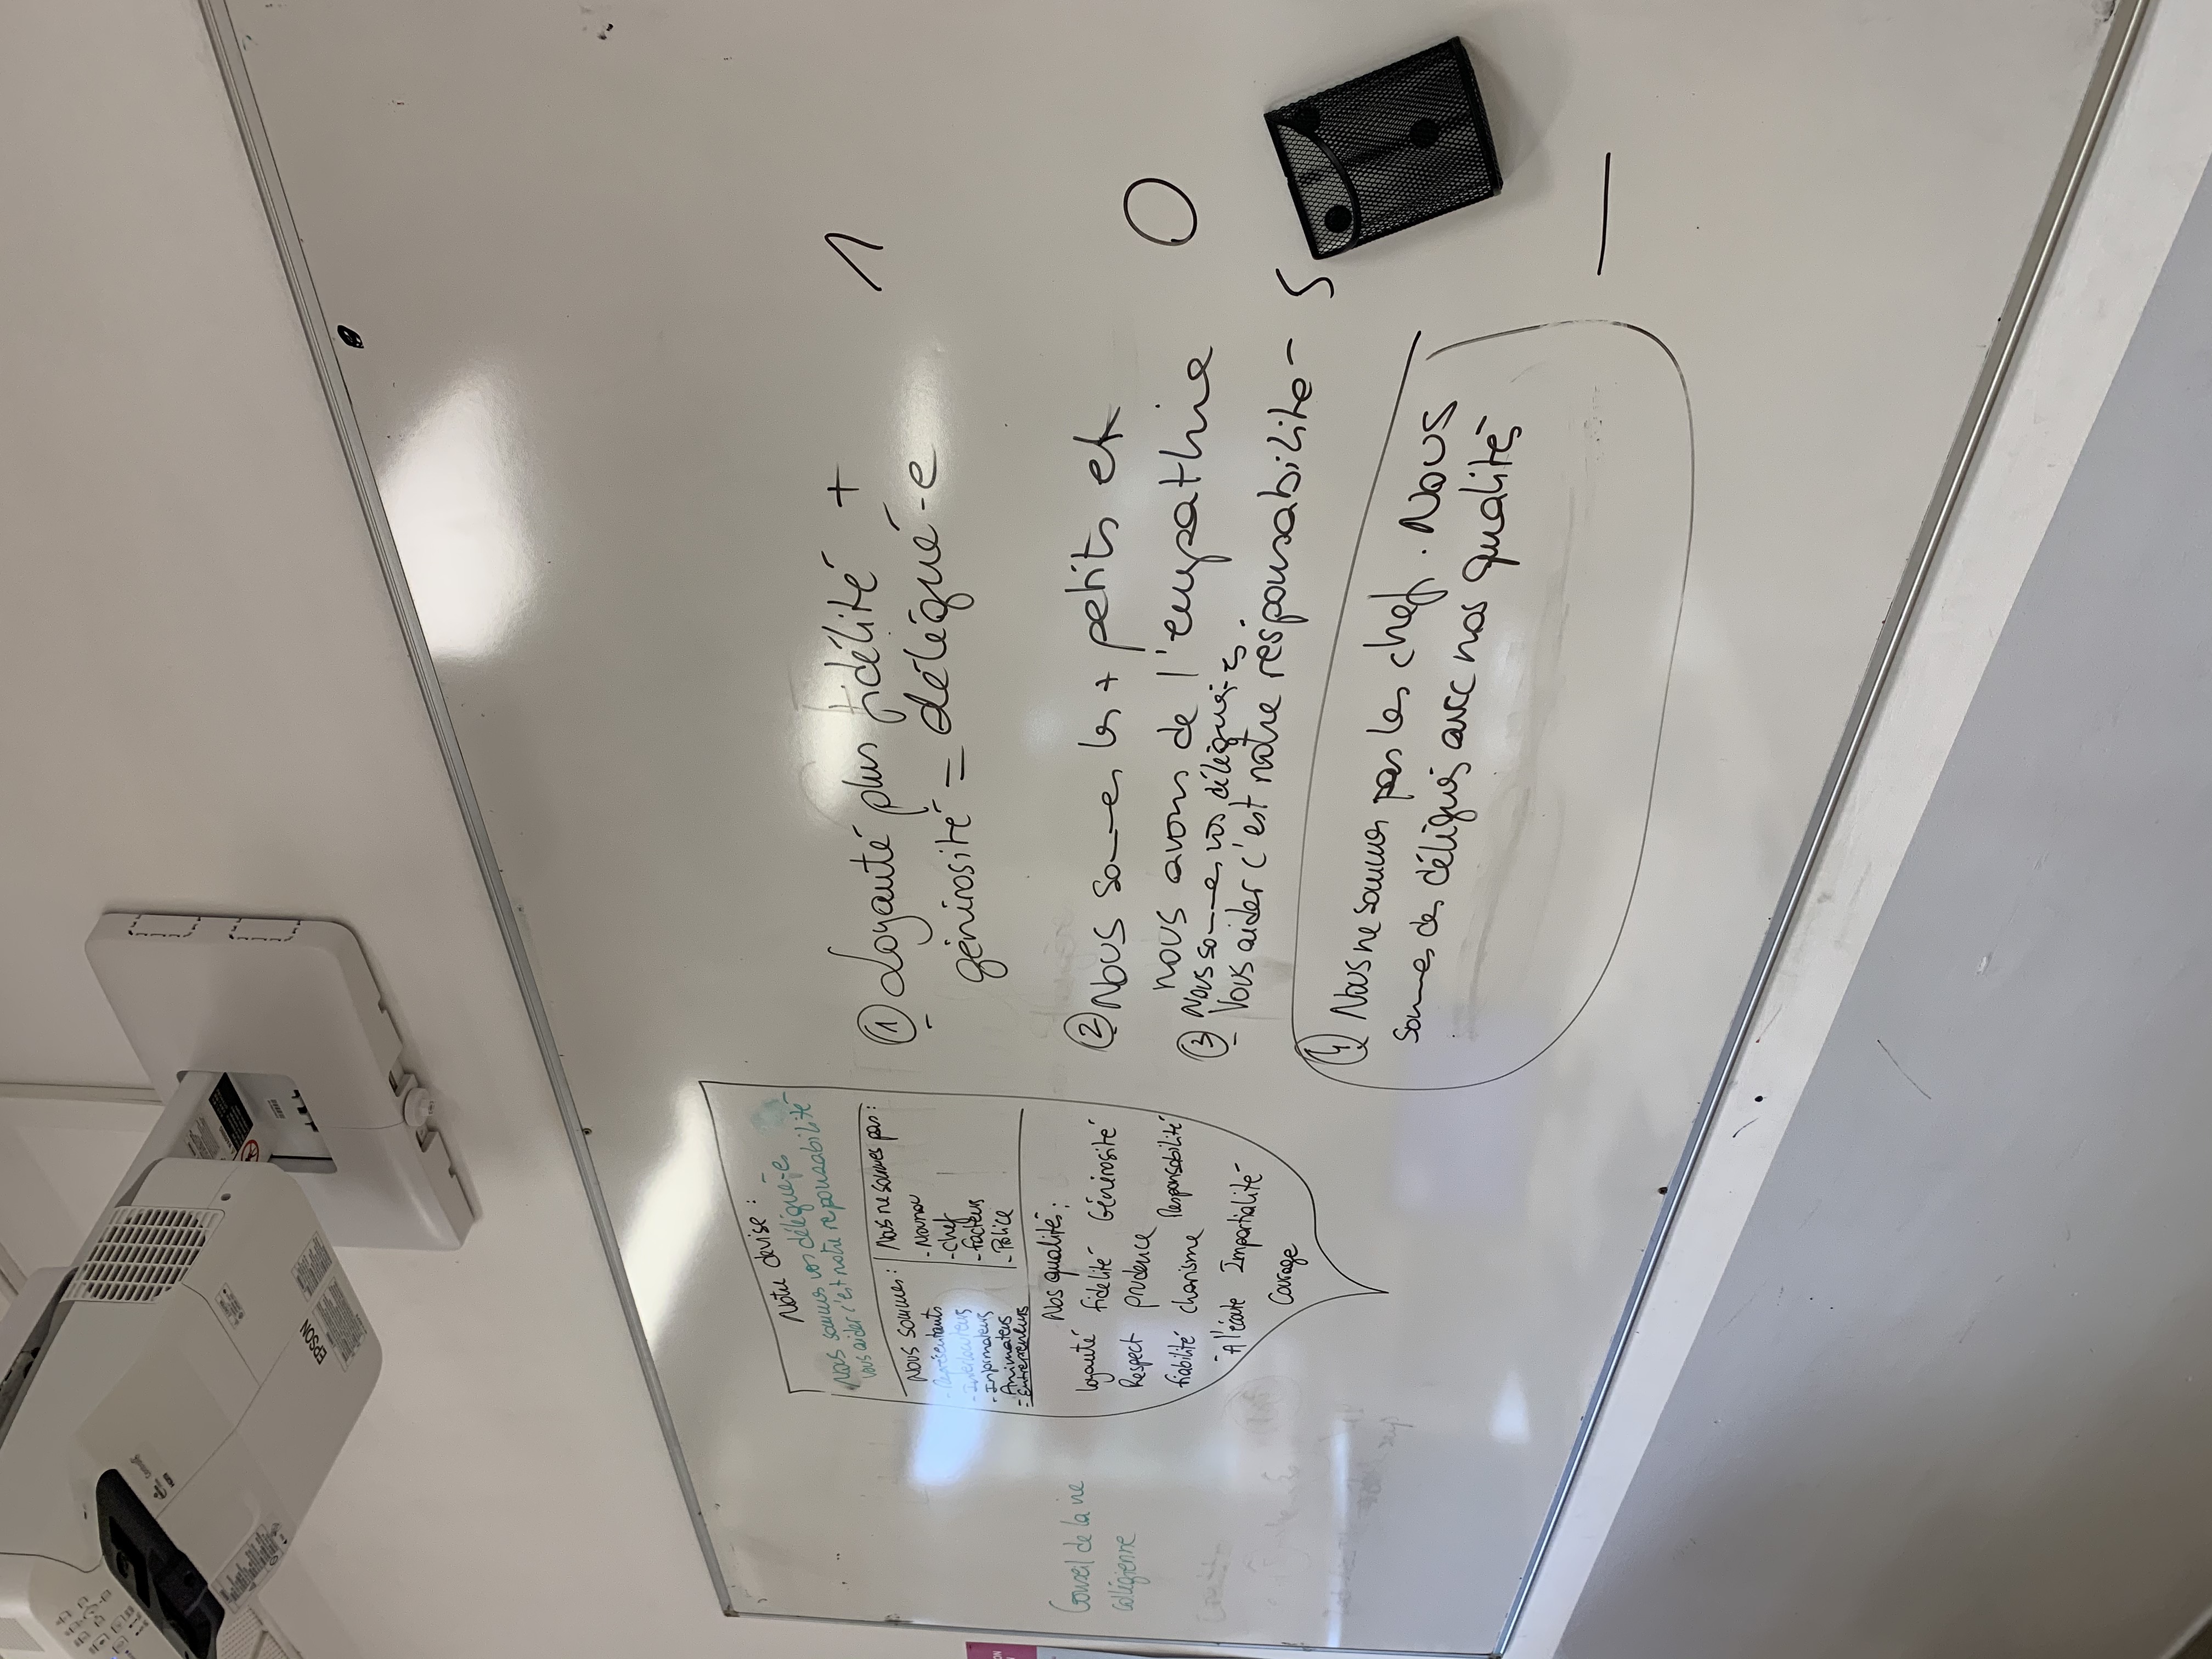 Conseil de la vie
collégienne
Notre devise :
Nous sommes vos délégué-e-s
vous aider c'est notre responsabilité
Nous sommes :
- Représentants
- Interlocuteurs
- Informateurs
- Animateurs
- Entrepreneurs
Nous ne sommes pas :
- Nounou
- Chef
- Facteurs
- Police
Nos qualités :
loyauté fidélité Générosité
Respect prudence
fiabilité charisme Responsabilité
- A l'écoute Impartialité
Courage
① Loyauté plus fidélité + 1
générosité = délégué-e
② Nous so—es les + petits et
nous avons de l'empathie 0
③ Nous so—es vos délégué-s.
Vous aider c'est notre responsabilité - 5
④ Nous ne sommes pas les chef. Nous
so—es des délégués avec nos qualités
EPSON